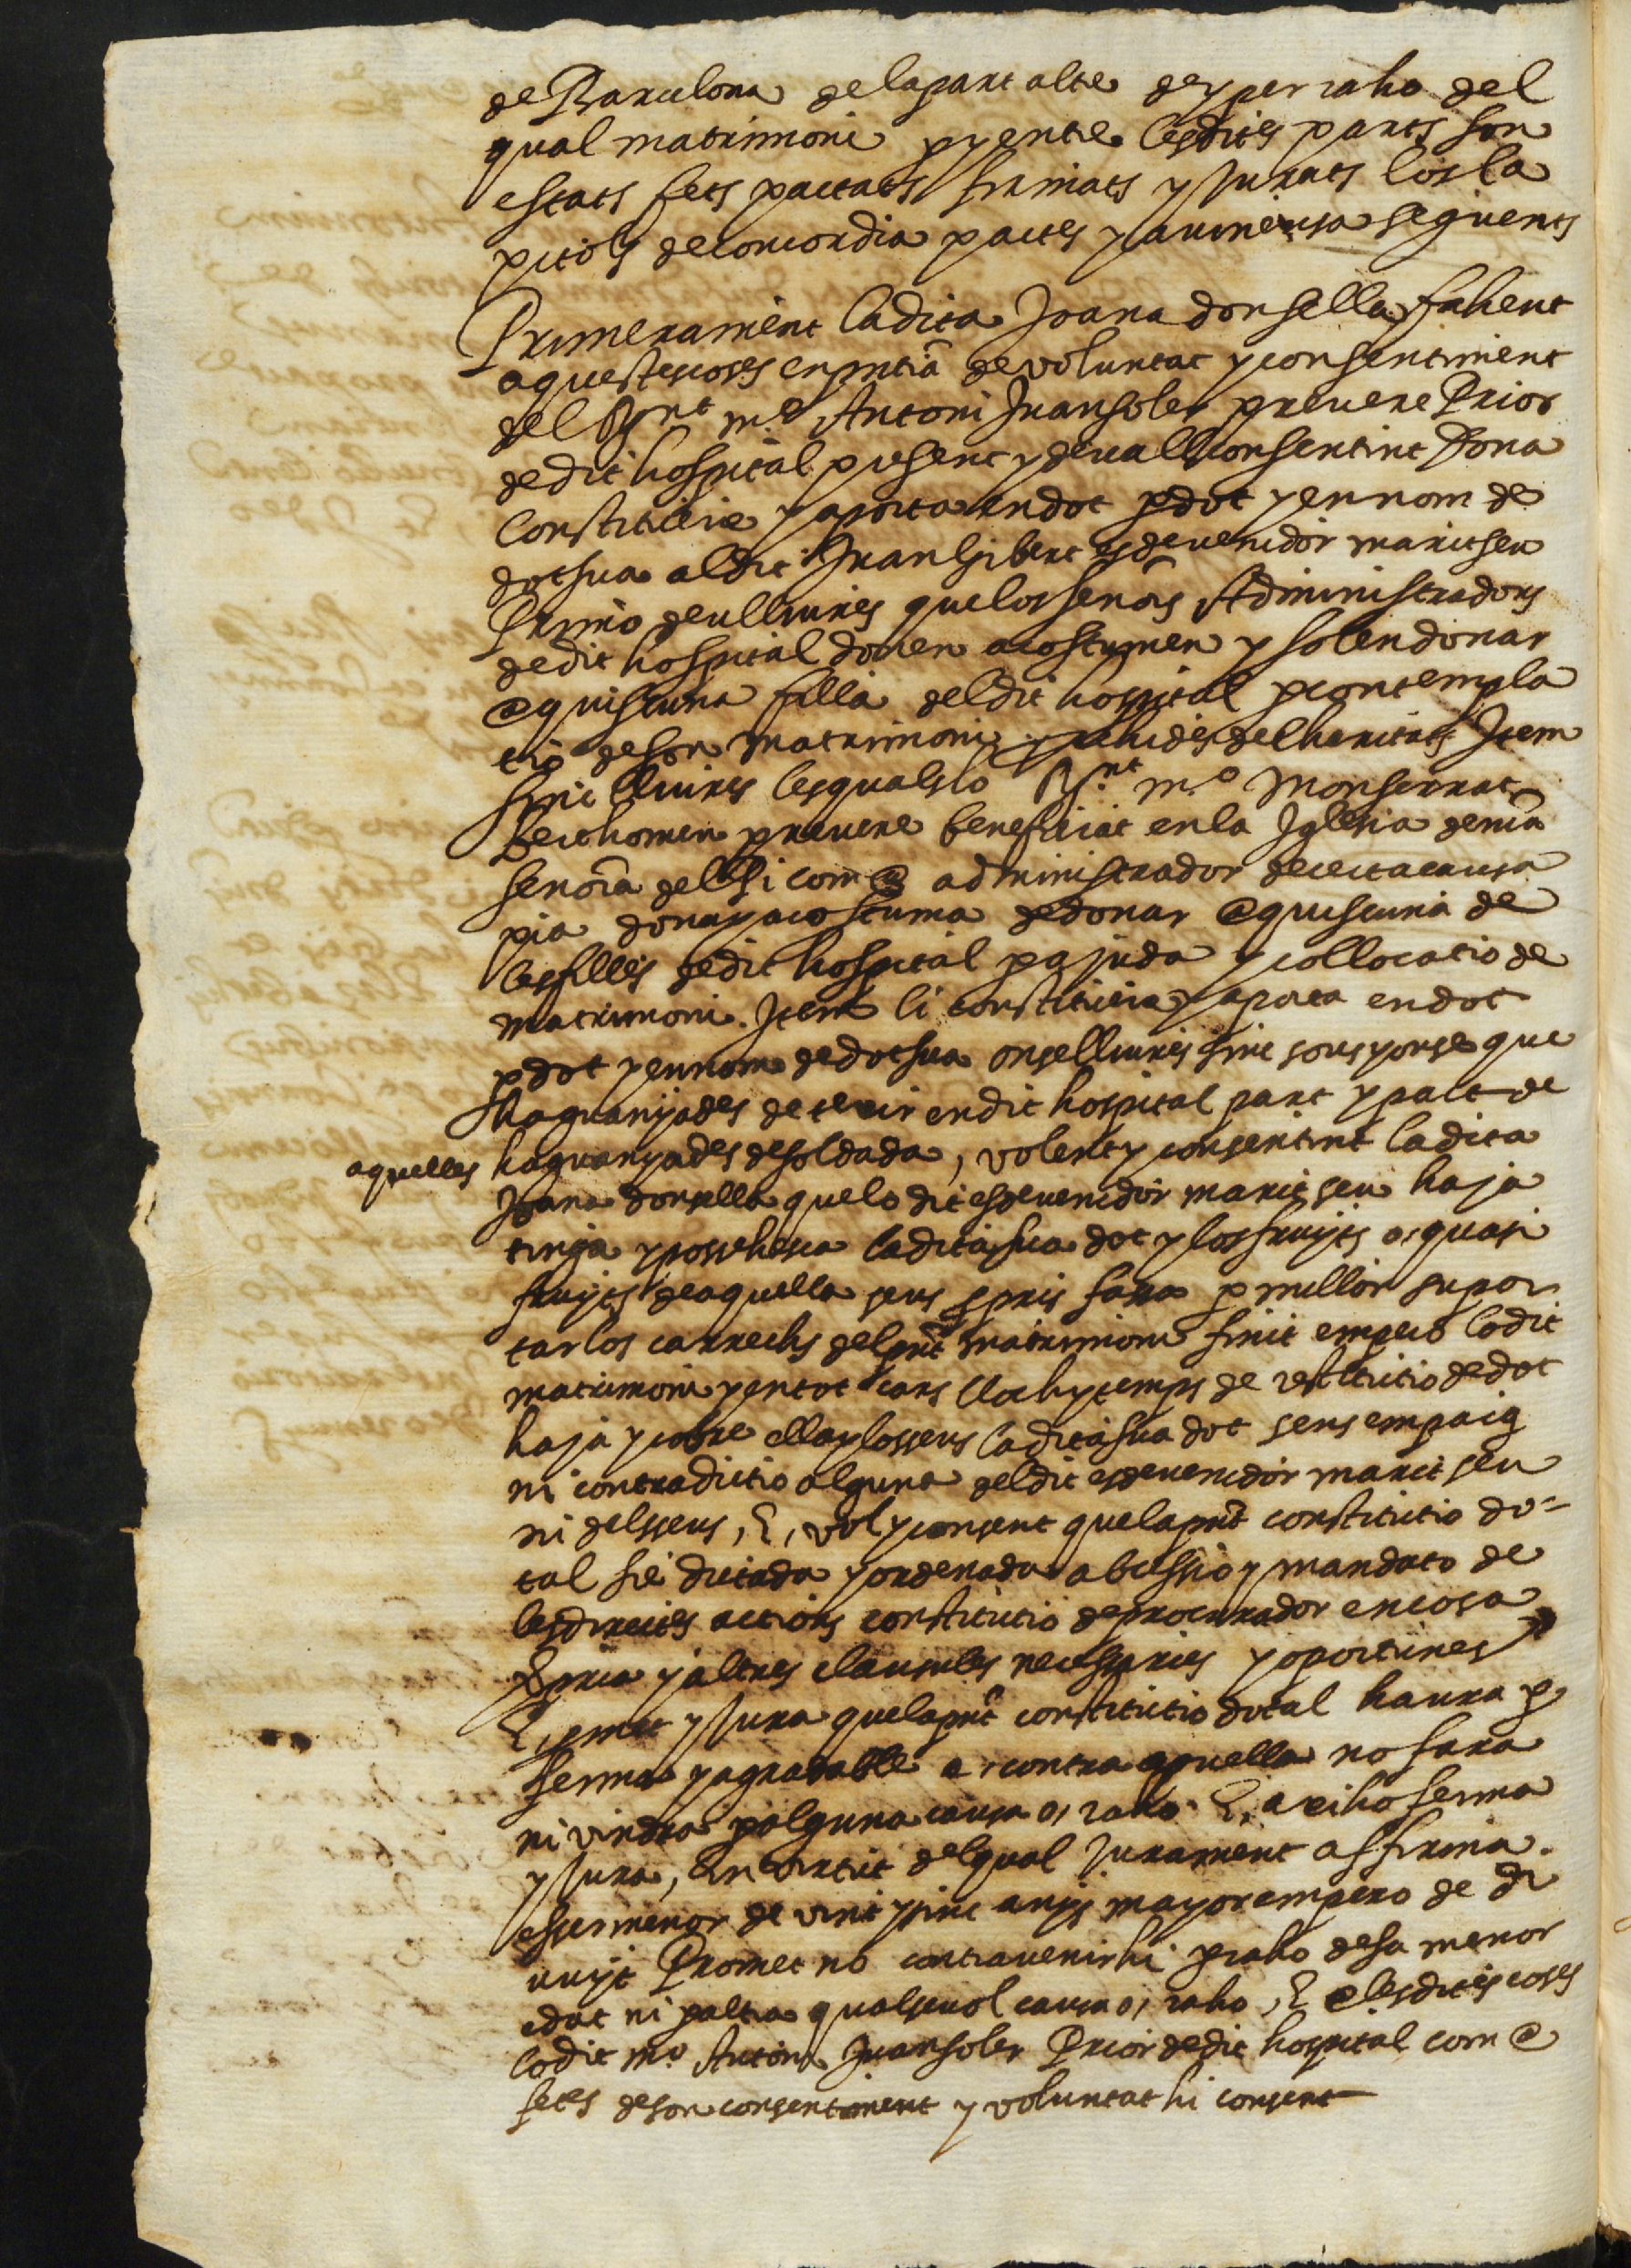 de Barcelona de la part altre de y per raho del
qual matrimoni p y entre les dites parts son
estats fets pactats firmats y jurats los ca
pitols de concordia pactes y avinensa seguents
Primerament la dita Joana donsella fahent
aquestes coses en pntia de voluntat y consentiment
del Rnt m.º Antoni Juansoler prevere Prior
de dit hospital present y devall consentint Dona
constitueix y aporta en dot p dot y en nom de
dot sua al dit Juan Gibert esdevenidor marit seu
Primo deu lliures que los señors Administradors
de dit hospital donen acostumen y solen donar
@ quiscuna filla del dit hospital p contempla
tio de son matrimoni y exhides del heretats Item
sinc lliures les quals lo Rnt m.º Monserrat
prevere beneficiat en la Iglesia de nra
señora del Pi com @ administrador de certa causa
pia dona y acostuma de donar @ quiscuna de
les filles de dit hospital p ajuda y collocatio de
matrimoni. Item li constitueix y aporta en dot
p dot y en nom de dot sua onse lliures sinc sous y onse que
ha guanyades de servir en dit hospital part y part de
aquelles ha guanyades de soldada, volent y consentint la dita
Joana donsella que lo dit esdevenidor marit seu haja
tinga y possehesca la dita sua dot y los fruyts o, quasi
fruyts de aquella seus ppris fara p millor supor
tar los carrechs del pnt matrimoni finit empero lo dit
matrimoni y en tot cars lloch y temps de restitutio de dot
haja y cobre ella y los seus la dita sua dot sens empaig
ni contradictio alguna del dit esdevenidor marit seu
ni dels seus, E, vol y consent que la pnt constitutio do=
tal sie dictada y ordenada ab cessio y mandato de
les dretes actions constitutio de procurador en cosa
ppria y altres clausules necessaries y oportunes
E, pmet y jura que la pnt constitutio dotal haura p
ferma y agradable e, contra aquella no fara
ni vindra p alguna causa o, raho. E, axi ho ferma
y jura, En virtut del qual jurament affirma.
esser menor de vint y sinc anys major empero de di
vuyt Promet no contravenir hi p raho de sa menor
edat ni p altra qualsevol causa o, raho, E @ les dites coses
lo dit m.º Antoni Juansoler Prior de dit hospital com @
fetes de son consentiment y voluntat hi consent